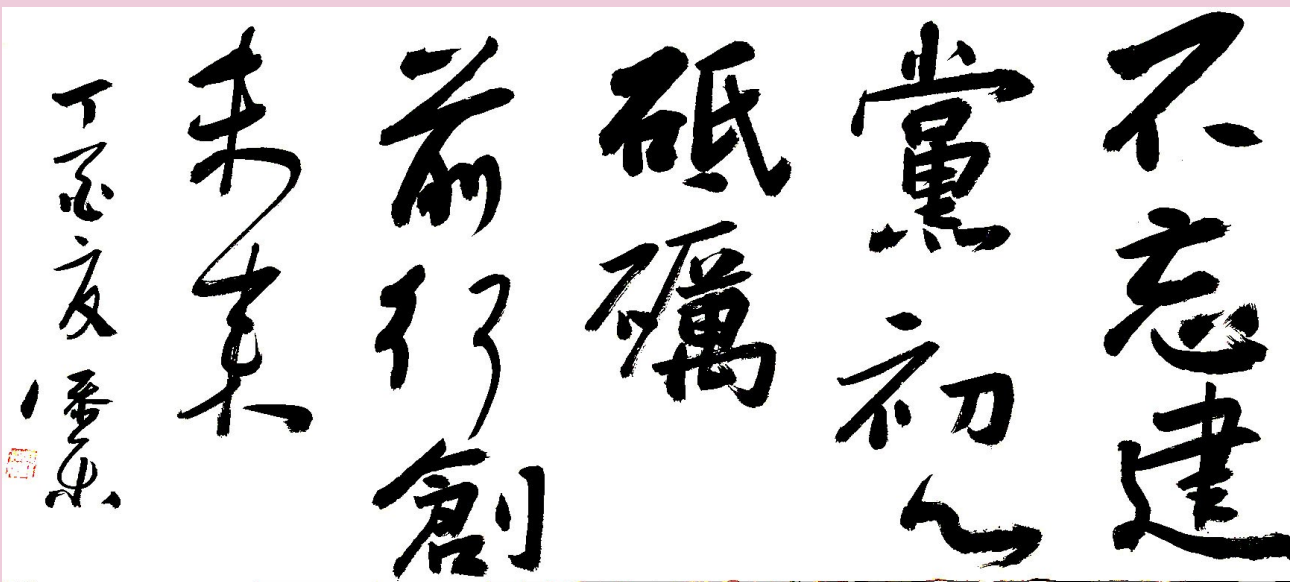 不忘建
黨初心
砥礪
前行創
未來
丁酉夏